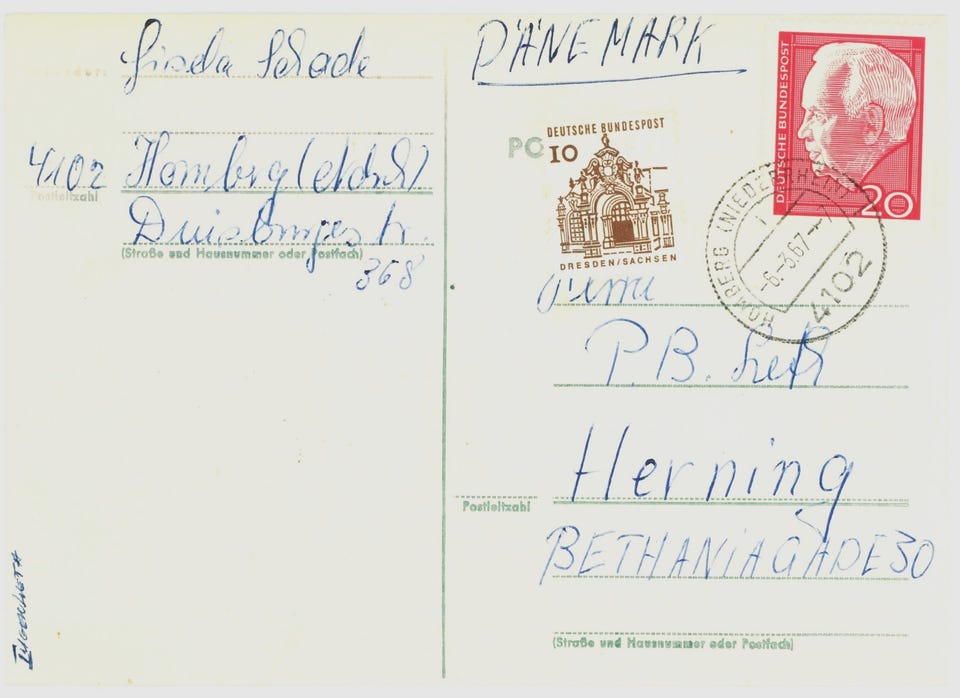 Gisela Schade
4102 Homberg (Ndrh)
Postleitzahl
Duisburgerstr.
(Straße und Hausnummer oder Postfach)
368
DÄNEMARK
DEUTSCHE BUNDESPOST
20
PO
DEUTSCHE BUNDESPOST
10
DRESDEN/SACHSEN
HOMBERG (NIEDERRHEIN) 1
-6.-3.67-
4102
P.B.
Herning
Postleitzahl
BETHANIAGADE 30
(Straße und Hausnummer oder Postfach)